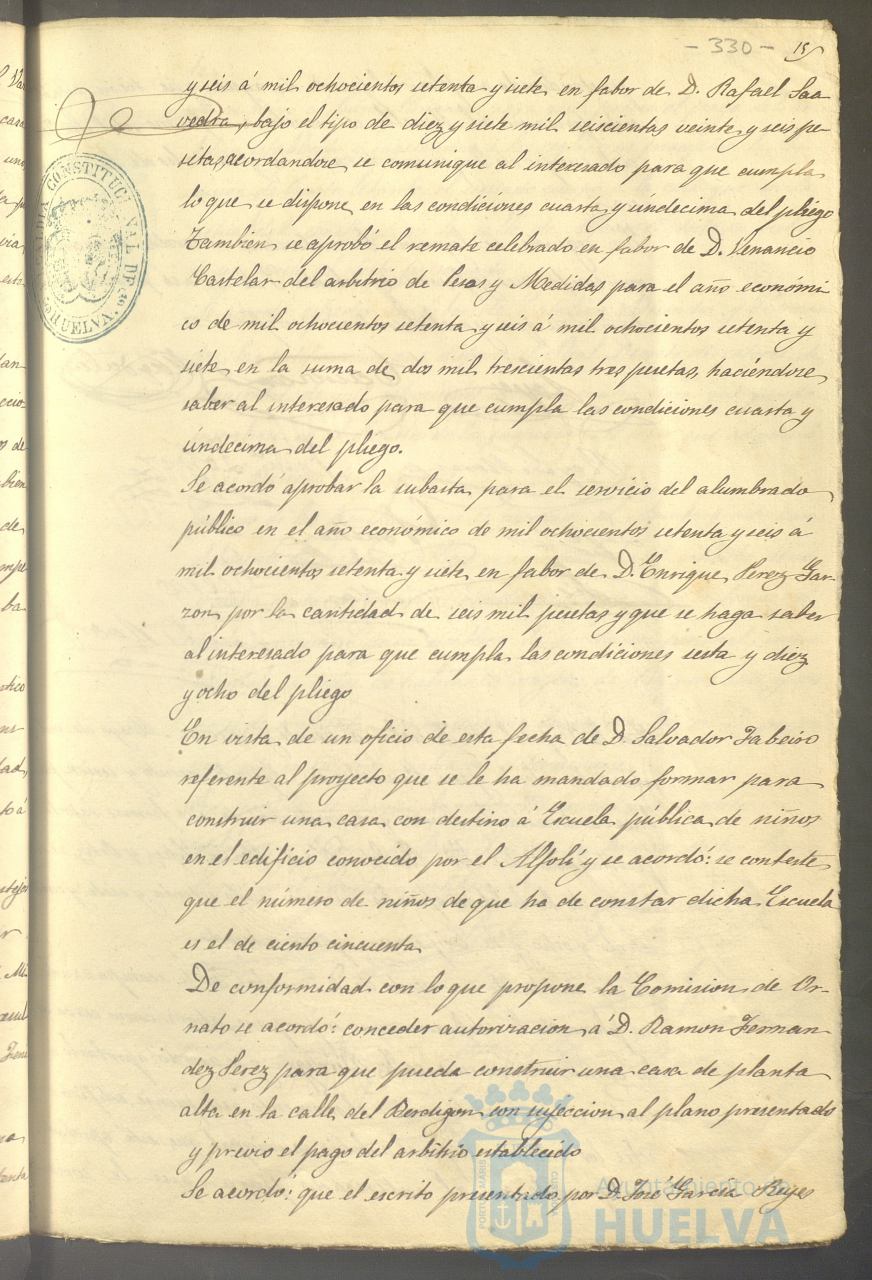 - 330 - 15
y seis á mil ochocientos setenta y siete en fabor de D. Rafael Saa
vedra, bajo el tipo de diez y siete mil seiscientas veinte y seis pe-
setas, acordandose se comunique al interesado para que cumpla
lo que se dispone en las condiciones cuarta y úndecima del pliego
Tambien se aprobó el remate celebrado en fabor de D. Venancio
Castelar del arbitrio de Pesas y Medidas para el año económi
co de mil ochocientos setenta y seis á mil ochocientos setenta y
siete en la suma de dos mil trescientas tres pesetas, haciéndose
saber al interesado para que cumpla las condiciones cuarta y
úndecima del pliego.
Se acordó aprobar la subasta para el servicio del alumbrado
público en el año económico de mil ochocientos setenta y seis á
mil ochocientos setenta y siete en fabor de D. Enrique Perez Gar-
zon por la cantidad de seis mil pesetas y que se haga saber
al interesado para que cumpla las condiciones sesta y diez
y ocho del pliego
En vista de un oficio de esta fecha de D. Salvador Tabeiro
referente al proyecto que se le ha mandado formar para
construir una casa con destino á Escuela pública de niños
en el edificio conocido por el Alfolí y se acordó: se conteste
que el número de niños de que ha de constar dicha Escuela
es el de ciento cincuenta
De conformidad con lo que propone la Comision de Or-
nato se acordó: conceder autorizacion á D. Ramon Fernan-
dez Perez para que pueda construir una casa de planta
alta en la calle del Berdigon con sujeccion al plano presentado
y previo el pago del arbitrio establecido
Se acordó: que el escrito presentado por D. José Garcia Reyes
CONSTITUCI NAL DE
HUELVA
Ayuntamiento de
HUELVA